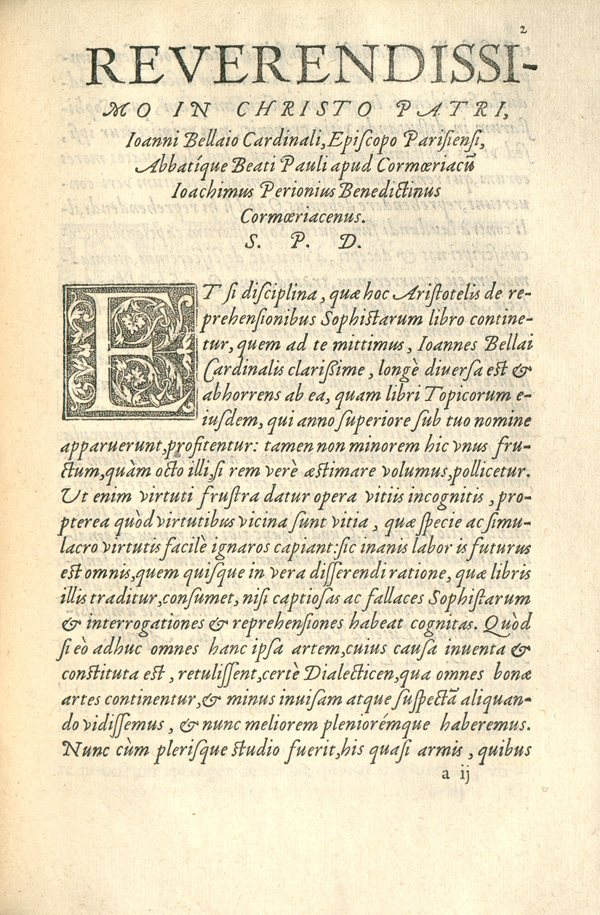 2
REVERENDISSI-
MO IN CHRISTO PATRI,
Ioanni Bellaio Cardinali, Episcopo Parisiensi,
Abbatíque Beati Pauli apud Cormœriacũ
Ioachimus Perionius Benedictinus
Cormœriacenus.
S. P. D.
ET si disciplina, quæ hoc Aristotelis de re-
prehensionibus Sophistarum libro contine-
tur, quem ad te mittimus, Ioannes Bellai
Cardinalis clarißime, longè diversa est &
abhorrens ab ea, quam libri Topicorum e-
iusdem, qui anno superiore sub tuo nomine
apparuerunt, profitentur: tamen non minorem hic vnus fru-
ctum, quàm octo illi, si rem verè æstimare volumus, pollicetur.
Ut enim virtuti frustra datur opera vitiis incognitis, pro-
pterea quòd virtutibus vicina sunt vitia, quæ specie ac simu-
lacro virtutis facilè ignaros capiant: sic inanis labor is futurus
est omnis, quem quisque in vera disserendi ratione, quæ libris
illis traditur, consumet, nisi captiosas ac fallaces Sophistarum
& interrogationes & reprehensiones habeat cognitas. Quòd
si eò adhuc omnes hanc ipsa artem, cuius causa inuenta &
constituta est, retulissent, certè Dialecticen, qua omnes bonæ
artes continentur, & minus inuisam atque suspectã aliquan-
do vidissemus, & nunc meliorem pleniorémque haberemus.
Nunc cùm plerisque studio fuerit, his quasi armis, quibus
a ij